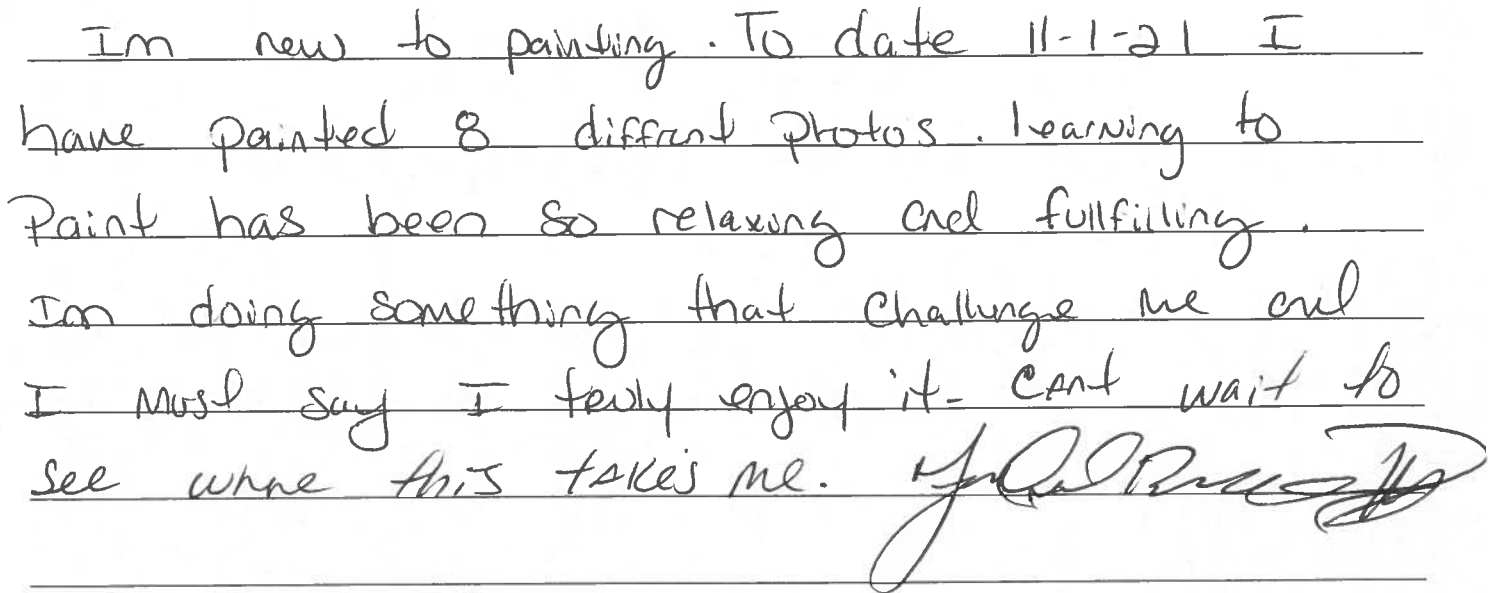 Im new to painting. To date 11-1-21 I
have painted 8 diffrent photos. learning to
Paint has been so relaxing and fullfilling.
Im doing something that challunge me and
I must say I truly enjoy it- CANt wait to
see whre this takes me.